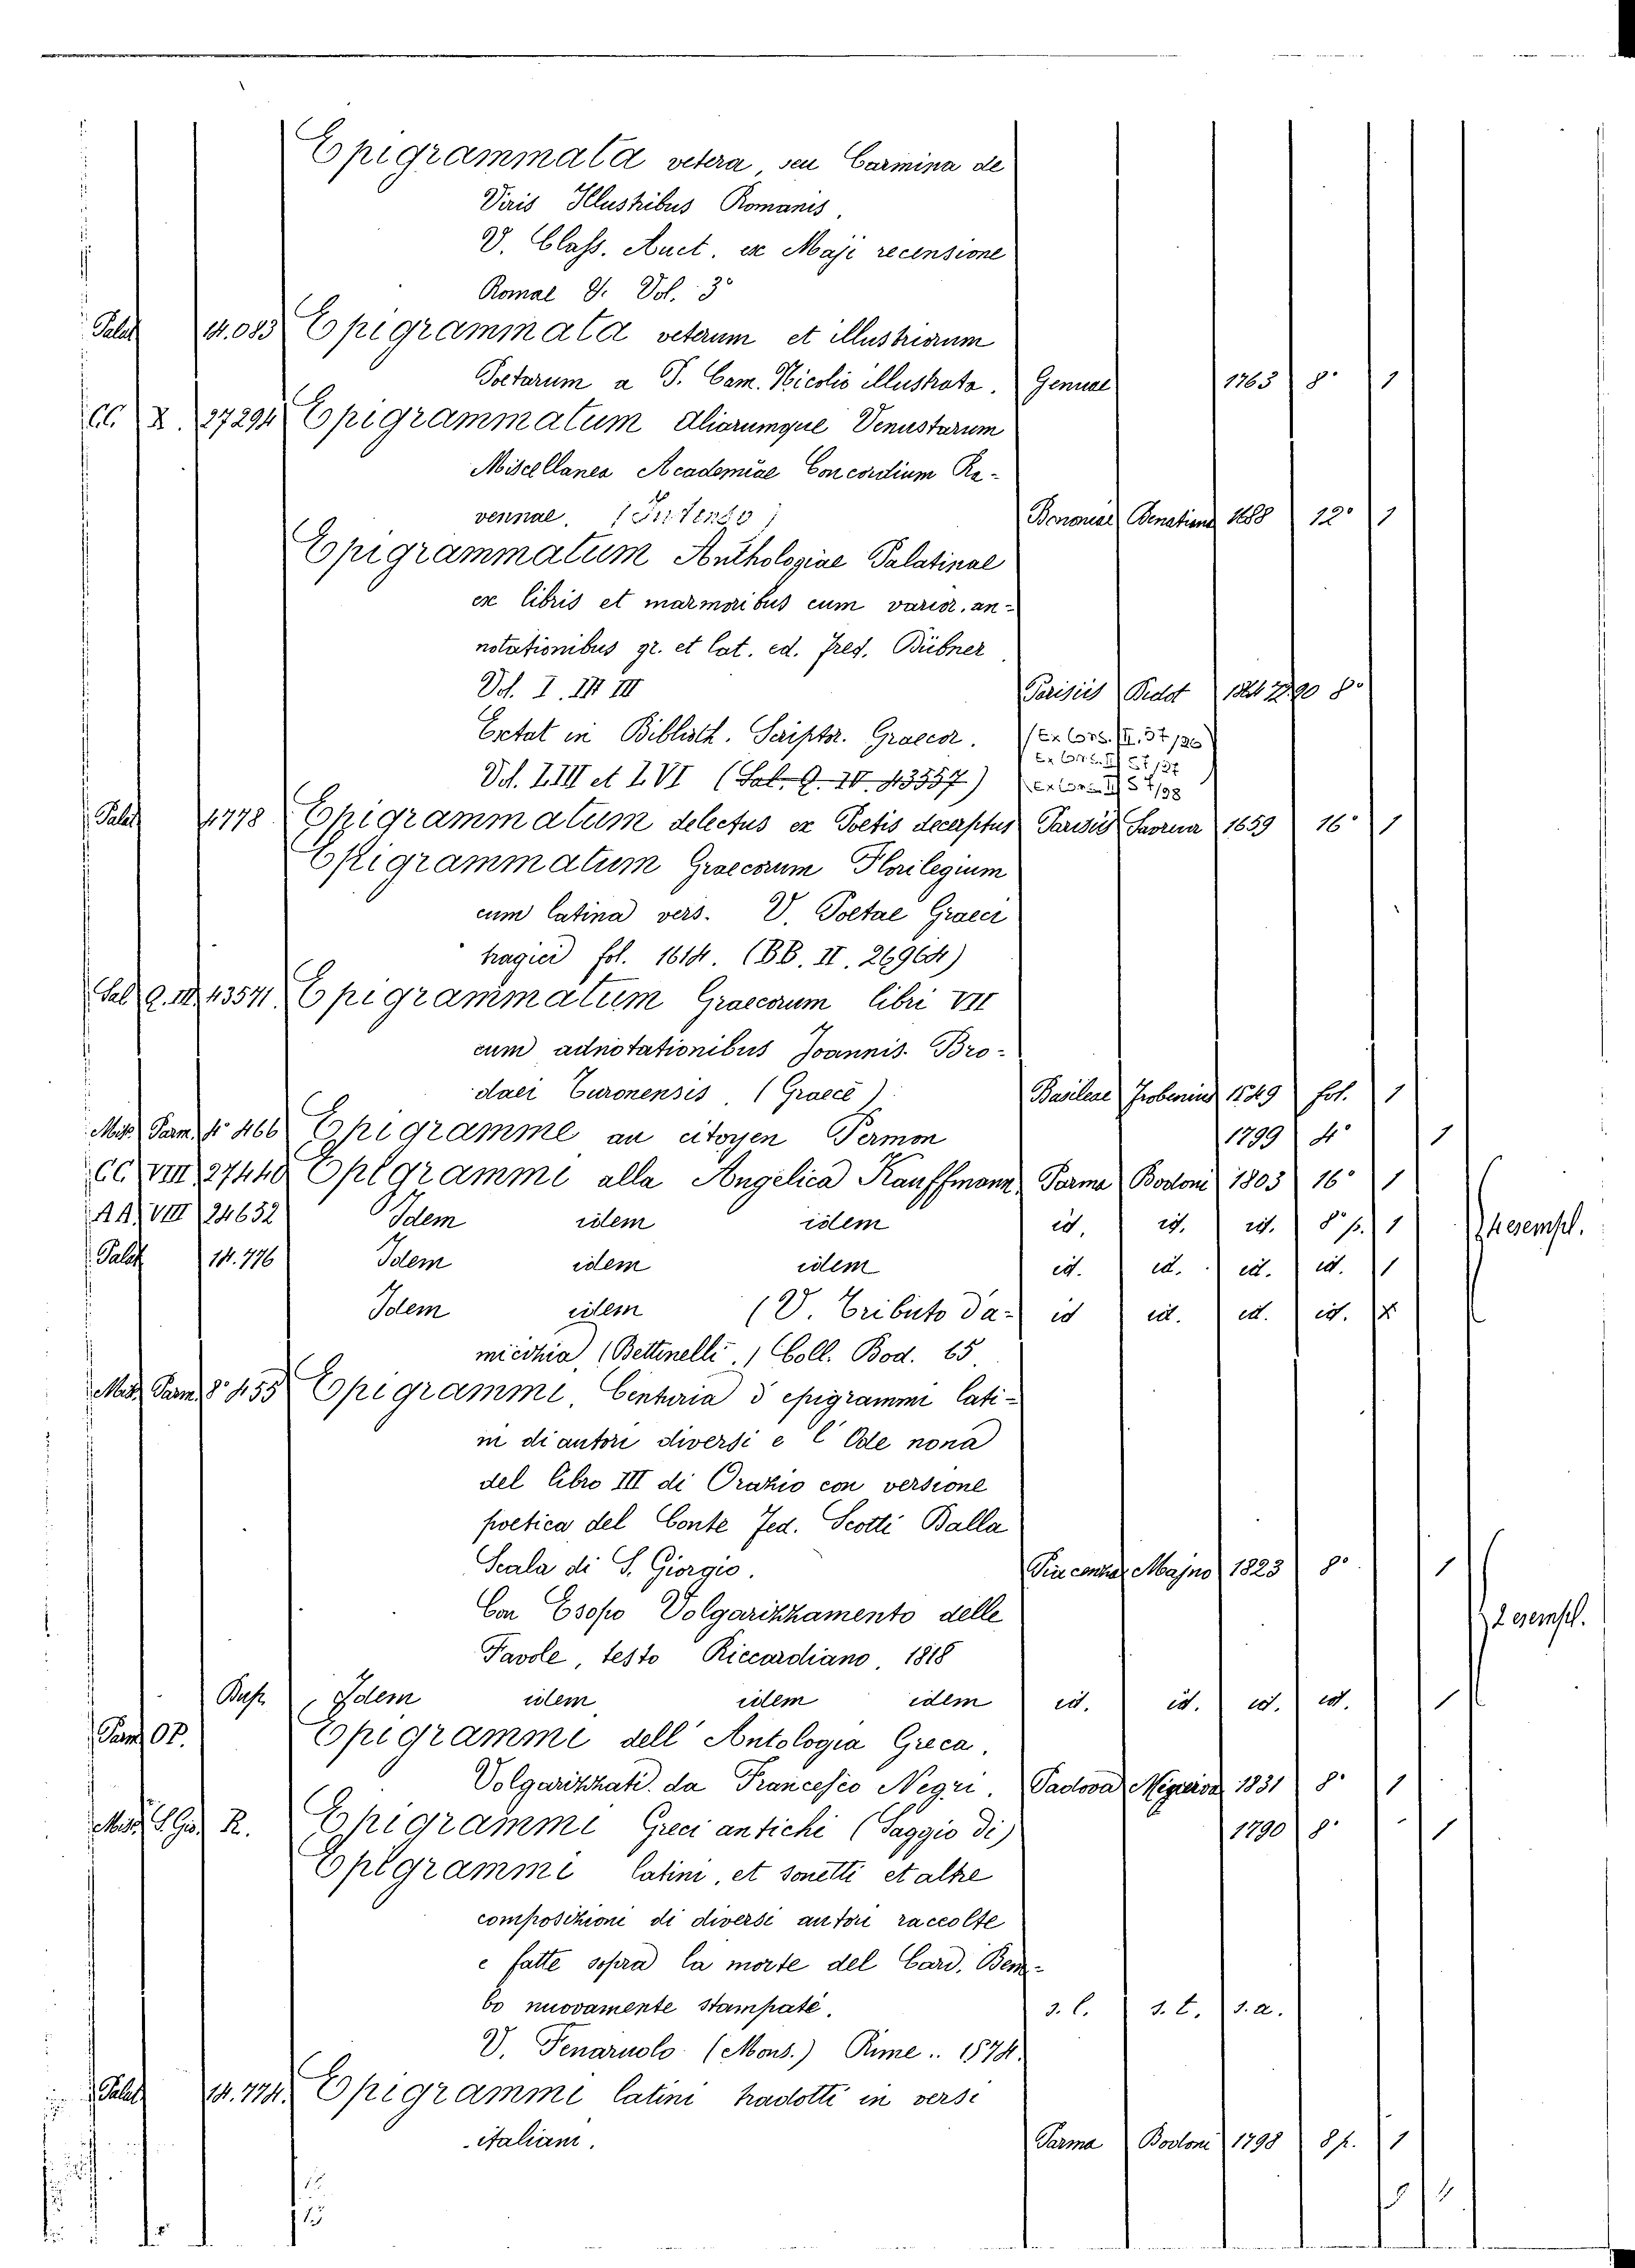 Epigrammata vetera, seu Carmina de
Viris Illustribus Romanis.
V. Class. Auct. ex Maji recensione
Romae 8. Vol. 3°
Palat 14.083 Epigrammata veterum et illustriorum
Poetarum a P. Cam. Nicolio illustrata. Genuae 1763 8° 1
CC. X. 27294 Epigrammatum aliorumque Venustarum
Miscellanea Academiae Concordium Ra-
vennae. Bononiae 1688 12° 1
Epigrammatum Anthologiae Palatinae
ex libris et marmoribus cum varior. an-
notationibus gr. et lat. ed. Fred. Bübner
Vol. I. II III Parisiis Didot 8°
Extat in Biblioth. Scriptor. Graecor. (Ex Cons. II. 57/36)
Ex Cons. II 57/37
Vol. LIII et LVI (Sal. Q. IV. 43557) Ex Cons. II 57/38
Palat 14778 Epigrammatum delectus ex Poetis decerptus Parisiis Savreux 1659 16° 1
Epigrammatum Graecorum Florilegium
cum latina vers. V. Poetae Graeci
tragici fol. 1614. (BB. II. 26964)
Sal Q. III 43571 Epigrammatum Graecorum libri VII
cum adnotationibus Joannis Bro-
daei Turonensis (Graece) Basileae Frobenius 1549 fol. 1
Misc. Parm. 4° 466 Epigramme au citoyen Permon 1799 4° 1
CC. VIII 27440 Epigrammi alla Angelica Kauffmann Parma Bodoni 1803 16° 1
AA. VIII 24632 Idem idem idem id. id. id. 8° p. 1 esempl.
Palat 14.776 Idem idem idem id. id. id. id. 1
Idem idem (V. Tributo d'a- id id. id. id.
micizia (Bettinelli.) Coll. Bod. 65.
Misc. Parm. 8° 455 Epigrammi. Centuria d'epigrammi lati-
ni di autori diversi e l'Ode nona
del libro III di Orazio con versione
poetica del Conte Fed. Scotti Dalla
Scala di S. Giorgio. Piacenza Majno 1823 8° 1
Con Esopo Volgarizzamento delle 2 esempl.
Favole, testo Riccardiano. 1818
Busp. Idem idem idem idem id. id. id. id. 1
Parm OP. Epigrammi dell'Antologia Greca.
Volgarizzati da Francesco Negri. Padova 1831 8° 1
Misc. R. Epigrammi Greci antichi (Saggio di) 1790 8° 1
Epigrammi latini, et sonetti et altre
composizioni di diversi autori raccolte
e fatte sopra la morte del Card. Bem-
bo nuovamente stampate. s. l. s. t. s. a.
V. Fenaruolo (Mons.) Rime.. 1574.
Palat 14.774. Epigrammi latini tradotti in versi
italiani. Parma Bodoni 1798 8 p. 1